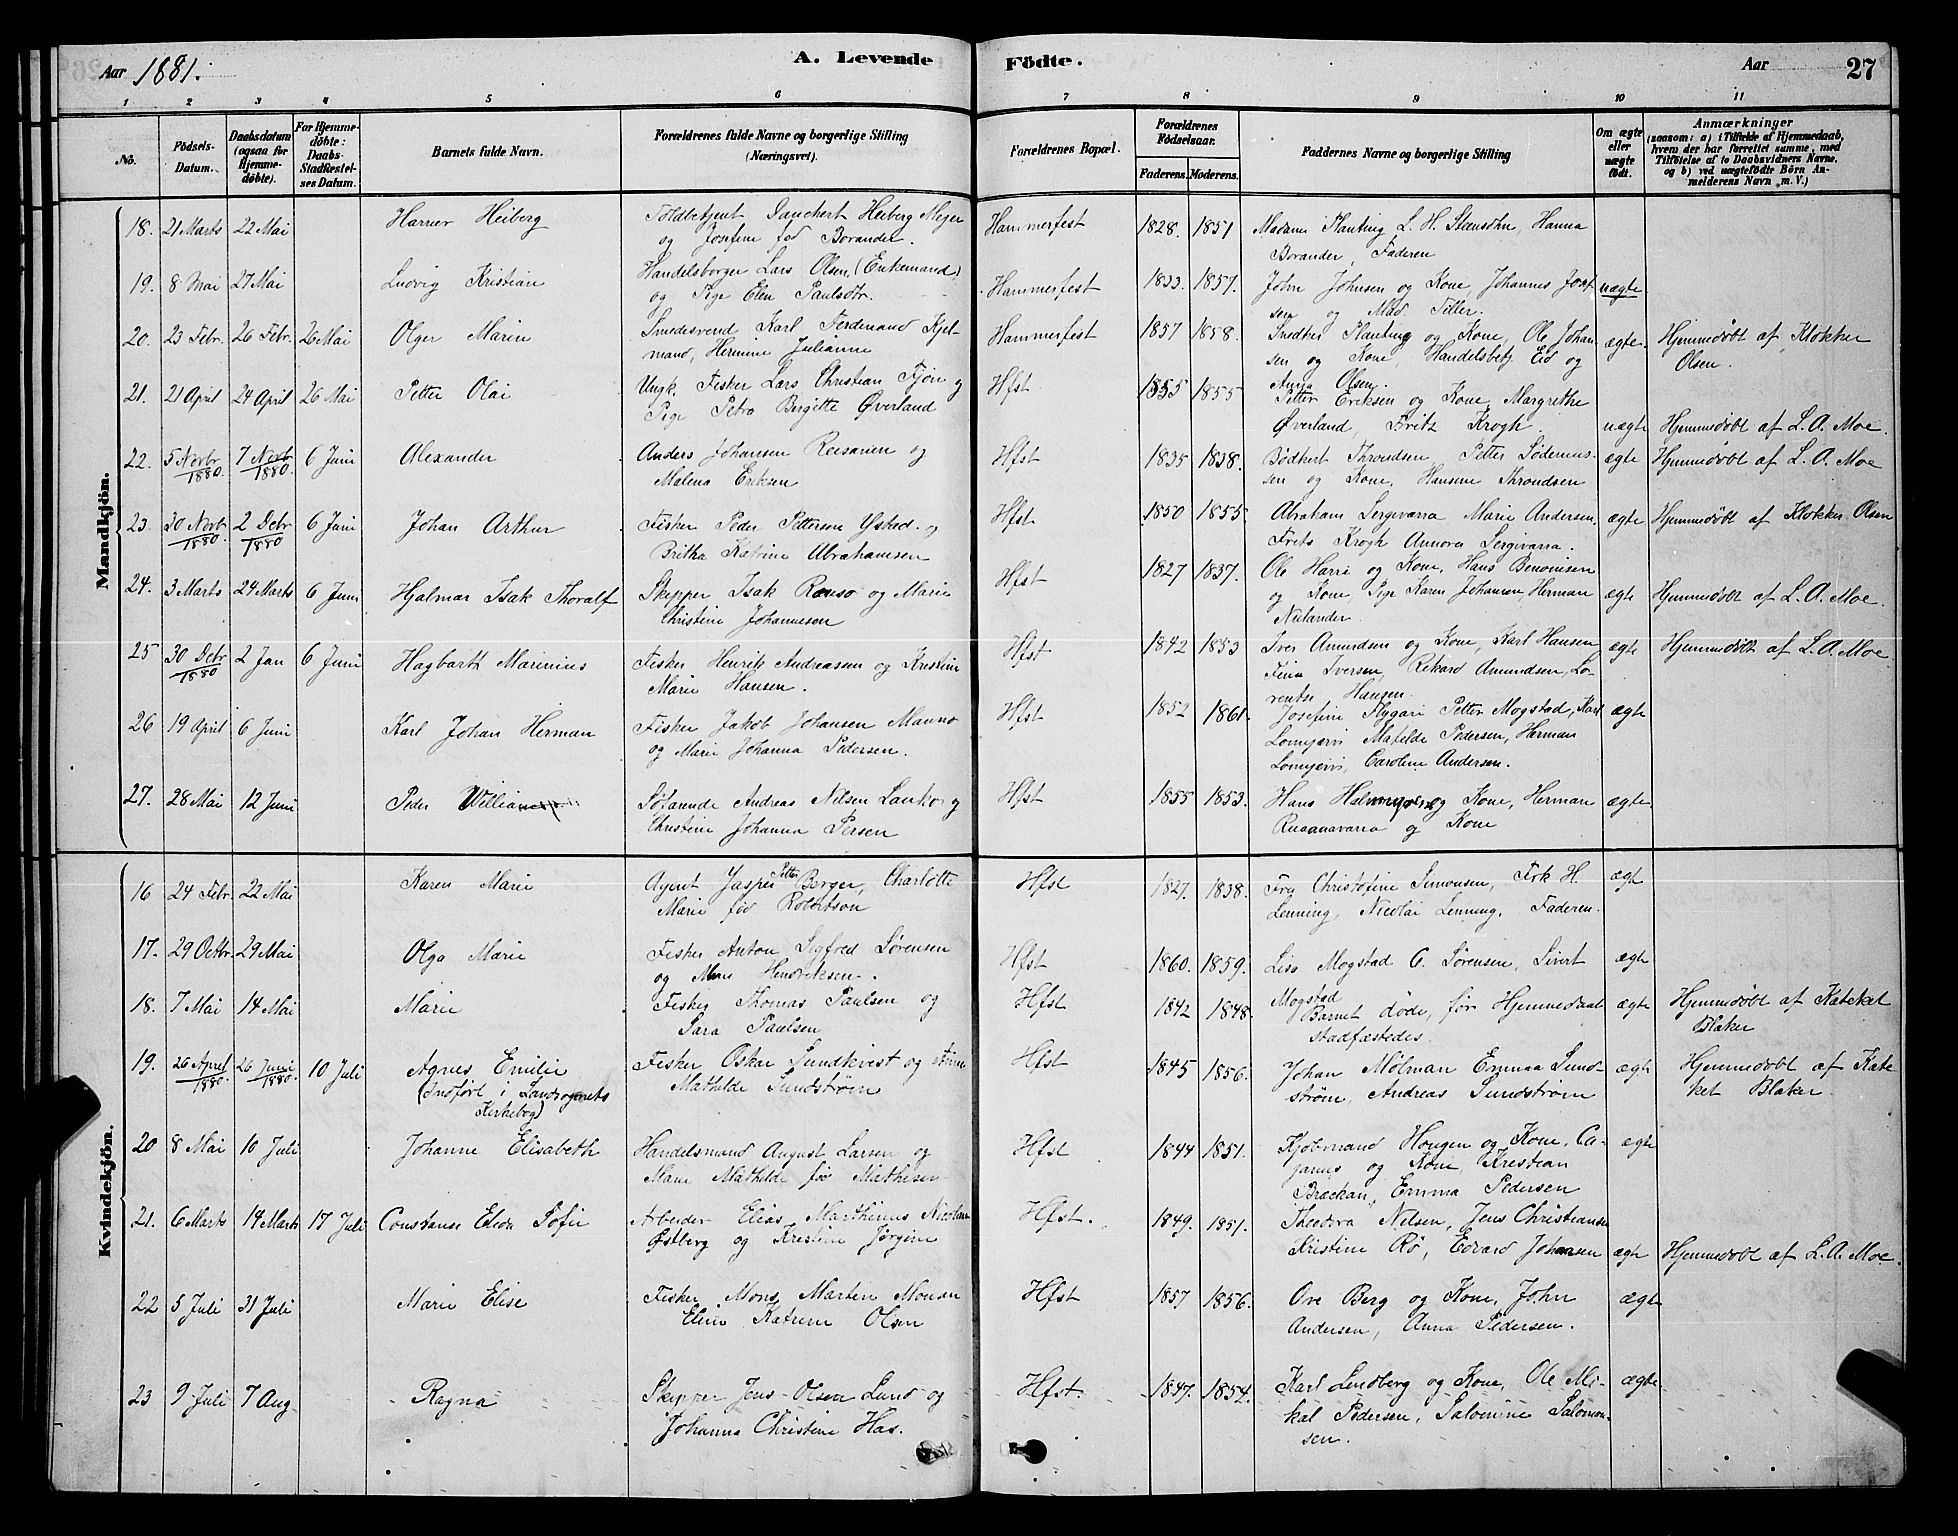 Aar 1881. A. Levende Födte. Aar 27
1 2 3 4 5 6 7 8 9 10 11
No. Födsels-Datum. Daabsdatum (ogsaa for Hjemme-döbte). For Hjemme-döbte: Daabs-Stadfæstel-ses Datum. Barnets fulde Navn. Forældrenes fulde Navne og borgerlige Stilling (Næringsvei). Forældrenes Bopæl. Forældrenes Födselsaar. Faderens. Moderens. Faddernes Navne og borgerlige Stilling Om ægte eller uægte födt. Anmærkninger (saasom: a) i Tilfælde af Hjemmedaab, hvem der har forrettet samme, med Tilföielse af to Daabsvidners Navne, og b) ved uægtefödte Börn An-melderens Navn m. V.)
Mandkjön.
18. 21 Marts 22 Mai Heiberg Toldbetjent Heiberg Mejer Hammerfest 1828. 1851 Madame Hanting L. H. Steensohn, Hanna
og Josefine fød Borander. Borander, Faderen
19. 8 Mai 27 Mai Ludvig Kristian Handelsborger Lars Olsen (Enkemand) Hammerfest 1833. 1857. John Johnsen og Kone, Johannes Josef- uægte
og Pige Elen Paulsdtr. sen og Mad. Tiller.
20. 23 Febr. 26 Febr. 26 Mai Olger Marin Smedesvend Karl Ferdinand Kjel- Hammerfest 1857 1858. Snedker Hanting og Kone, Ole Johan- ægte. Hjemmedøbt af Klokker
mand, Hermine Julianne sen og Kone, Handelsbetj. Ed og Olsen.
Anna Olsen.
21. 21 April 24 April 26 Mai Petter Olai Ungk. Fisker Lars Christian Fjön og Hfst 1855 1855 Petter Eriksen og Kone, Margrethe
Pige Petra Bergitte Øverland Øverland, Fritz Krogh. uægte Hjemmedøbt af L. A. Moe.
22. 5 Novbr 1880. 7 Novb 1880. 6 Juni Alexander Anders Johansen Reisanen og Hfst 1835 1838. Bødkert Throndsen, Petter Söderens- ægte Hjemmedøbt af L. A. Moe
Malena Eriksen sen og Kone, Hansine Throndsen
23. 30 Novbr 1880. 2 Debr 1880 6 Juni Johan Arthur Fisker Peder Pettersen Ysted og Hfst 1850 1855 Abraham Sergivarra Marie Andersen, ægte Hjemmedøbt af Klokker Olsen
Britha Katrine Abrahamsen Frits Krogh Annora Sergivarra.
24. 3 Marts 24 Marts 6 Juni Hjalmar Isak Thoralf Skipper Isak Ranso og Marie Hfst 1827 1837. Ole Harri og Kone, Hans Benonisen
Christine Johannesen og Kone, Pige Karen Johansen, Herman ægte Hjemmedøbt af L. A. Moe.
Neilander.
25 30 Debr 1880 2 Jan 6 Juni Hagbarth Marinius Fisker Henrik Andreassen og Kristine Hfst 1842 1853 Iver Amundsen og Kone, Karl Hansen ægte Hjemmedøbt af L. A. Moe.
Marie Hansen. Fina Iversen, Rikard Amundsen, Lo-
rentse Hansen.
26 19 April 6 Juni Karl Johan Herman Fisker Jakob Johansen Manno Hfst 1852 1861. Josefine Flygari Petter Mogstad, Karl ægte
og Marie Johanna Pedersen. Lomjervi Matilde Pedersen, Harman
Lomjervi, Caroline Andersen.
27. 28 Mai 12 Juni Peder William Søfarende Andreas Nilsen Lanko og Hfst 1855 1853. Hans og Kone, Herman ægte
Christine Johanna Persen Ruaanavarra og Kone
Kvindekjön.
16 24 Febr. 22 Mai Karen Marie Agent Jasper Petter Berger, Charlotte Hfst 1827. 1838. Fru Christofine Simonsen, Frk H. ægte
Marie fød Robertson Lenning, Nicolai Lenning, Faderen.
17. 29 Octbr. 29 Mai Olga Marie Fisker Anton Sigfred Sørensen Hfst 1860. 1859. Lisa Mogstad C. Sørensen, Sivert ægte
og Hendriksen. Mogstad
18. 7 Mai 14 Mai Marie Fisker Thomas Paulsen og Hfst 1842 1848. Barnet døde, før Hjemmedaab ægte Hjemmedøbt af Kateket
Sara Paulsen stadfæstedes. Blaker
19. 26 April 1880. 26 Juni 1880. 10 Juli Agnes Emilie Fisker Oskar Sundkvist og Hfst 1845 1856. Johan Mölman Emma Sund- ægte Hjemmedøbt af Kate
(Indført i Landsognets Kirkebog) Mathilde Sundstrøm strøm, Andreas Sundstrøm ket Blaker.
20 8 Mai 10 Juli Johanne Elisabeth Handelsmand August Larsen og Hfst 1844 1851. Kjøbmand Hougen og Kone, Ca- ægte
Marie Mathilde fød Mathisen janus og Kone Kristian
Brækan, Emma Pedersen
21. 6 Marts 14 Marts 17 Juli Constanse Elida Sofie Arbeider Elias Marthinus Hfst. 1849. 1851. Theodora Nilsen, Jens Christiansen
Østberg og Kristine Jørgine Kristine Rö, Edvard Johansen ægte Hjemmedøbt af L. A. Moe.
22 5 Juli 31 Juli Marie Elise Fisker Mons Martin Monsen Hfst 1857 1856. Ove Berg og Kone, John ægte
Elina Katrine Olsen Andersen, Anna Pedersen.
23 9 Juli 7 Aug Ragna Skipper Jens Olsen Lund og Hfst. 1847. 1854. Karl Lindberg og Kone, Ole Mi- ægte
Johanna Christine Has. kal Pedersen, Salomine Salomon-
sen.